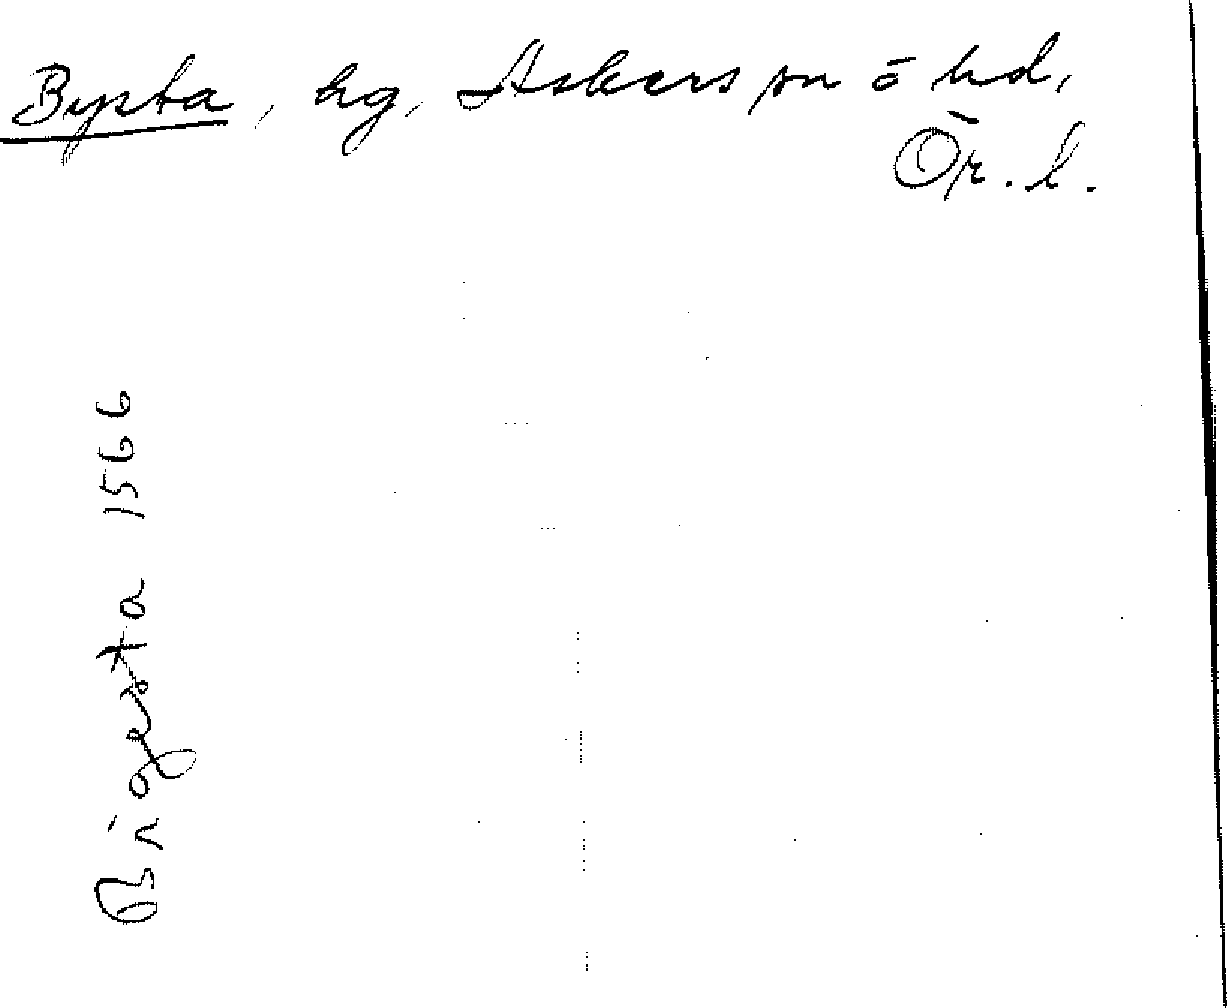 Bysta, hg, Askers sn o hd,
Ör. l.
Bigesta 1566